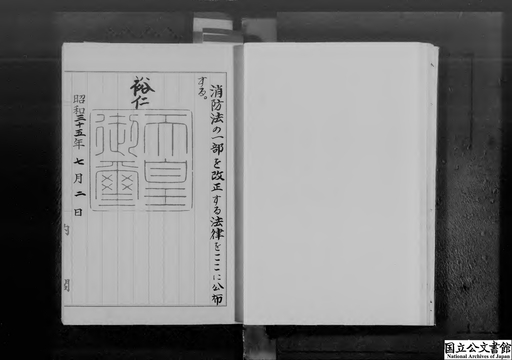 消防法の一部を改正する法律をここに公布
する。
裕仁
天皇
御璽
昭和三十五年七月二日
内閣
国立公文書館
National Archives of Japan